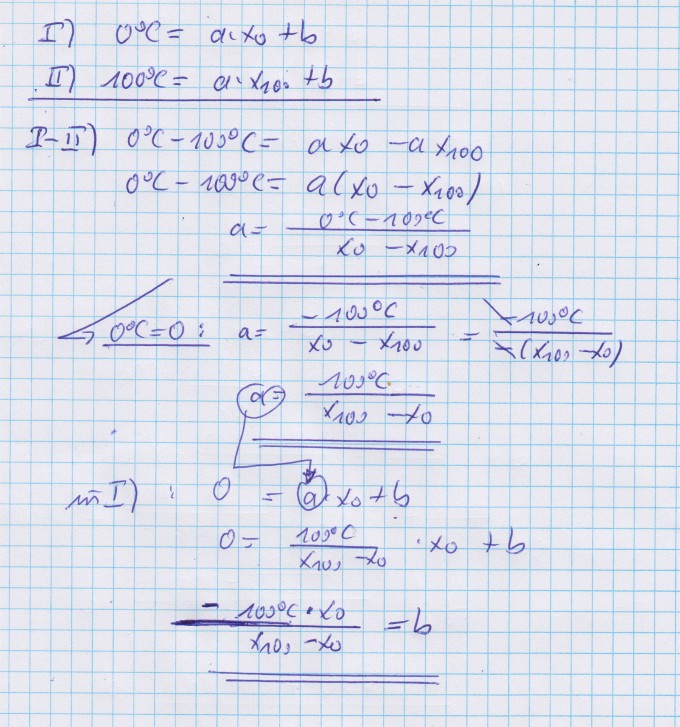 I) 0°C = a·x0 + b
II) 100°C = a·x100 + b
I-II) 0°C - 100°C = a x0 - a x100
0°C - 100°C = a(x0 - x100)
a = (0°C - 100°C) / (x0 - x100)
→ 0°C = 0 : a = (-100°C) / (x0 - x100) = (-100°C) / (-(x100 - x0))
a = (100°C) / (x100 - x0)
in I) : 0 = a·x0 + b
0 = (100°C) / (x100 - x0) · x0 + b
- (100°C · x0) / (x100 - x0) = b